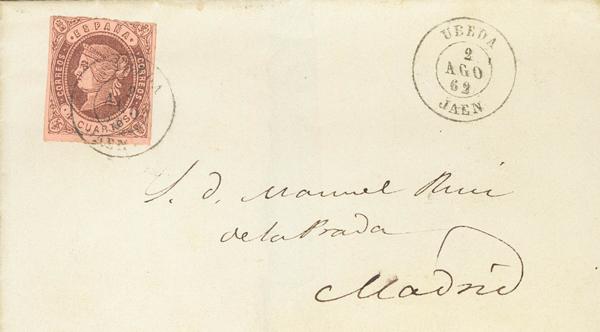 ESPAÑA
CORREOS
CORREOS
CUARTOS
AEN
UBEDA
2
AGO
62
JAEN
S. d. Manuel Ruiz
de la Prada
Madrid